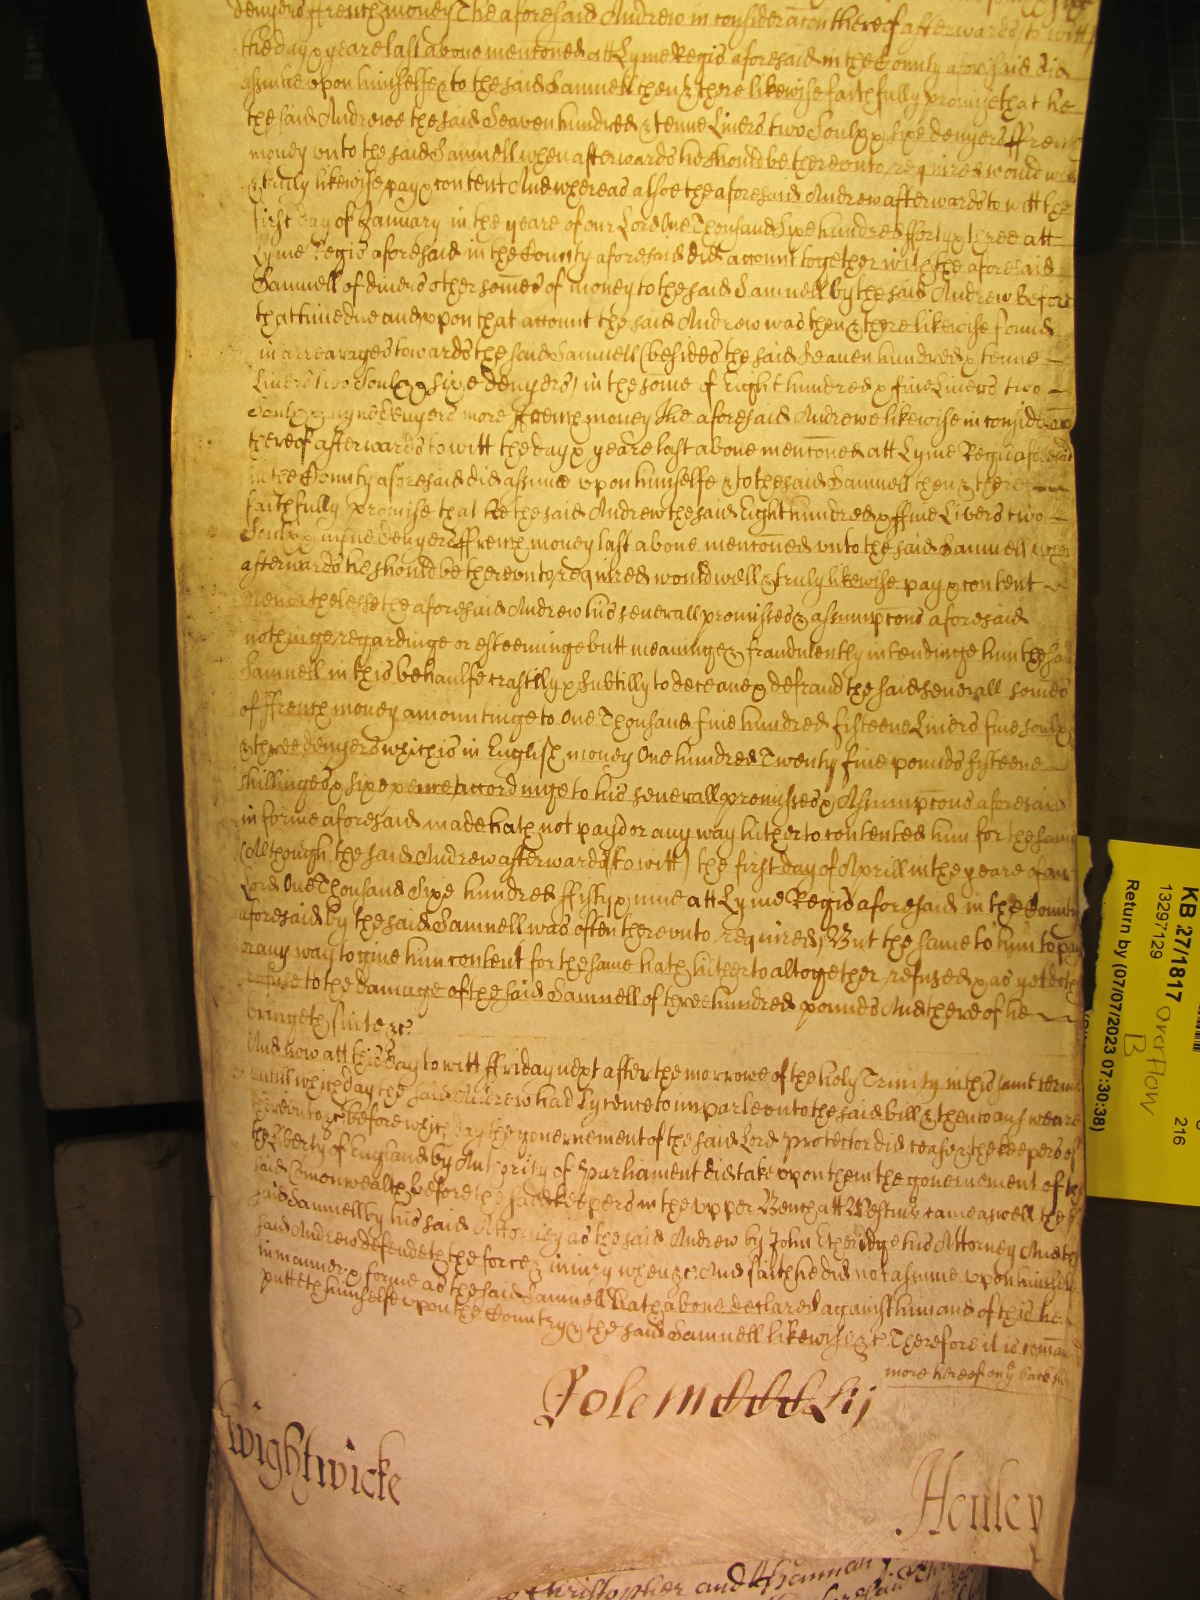 denyers ffrench money The aforesaid Andrew in consideracon thereof afterwards to witt
the day & yeare last above mentoned att Lyme Regis aforesaid in the County aforesaid did
assume upon himselfe & to the said Samuell then & there likewise faithfully promise that he
the said Andrewe the said Seaven hundred & tenne Livers two Soulx & sixe denyers ffrench
money unto the said Samuell when afterwards he should be thereunto required would well
& truly likewise pay & content And whereas alsoe the aforesaid Andrew afterwards to witt the
first day of January in the yeare of our Lord One Thousand Sixe hundred fforty & three att
Lyme Regis aforesaid in the County aforesaid did account together with the aforesaid
Samuell of divers other somes of money to the said Samuell by the said Andrew before
that time due and upon that account the said Andrew was then & there likewise found
in arrearages towards the said Samuell (besides the said Seaven hundred & tenne
Livers two Soulx & sixe denyers) in the some of Eight hundred & five Livers two
Soulx & nyne denyers more ffrench money The aforesaid Andrewe likewise in consideracon
thereof afterwards to witt the day & yeare last above mentoned att Lyme Regis aforesaid
in the County aforesaid did assume upon himselfe & to the said Samuell then & there
faithfully promise that he the said Andrew the said Eight hundred & ffive Livers two
Soulx & nyne denyers ffrench money last above mentoned unto the said Samuell when
afterwards he should be thereunto required would well & truly likewise pay & content
Neverthelesse the aforesaid Andrew his severall promisses & assumpcons aforesaid
not hinge regardinge or esteeminge butt meaninge & fraudulently intendinge him the said
Samuell in this behaulfe craftily & subtilly to deceave & defraud the said severall somes
of ffrench money amountinge to One Thousand five hundred fifteene Livers five soulx
& three denyers which is in English money One hundred Twenty five pounds fifteene
shillinges & sixe pence accordinge to his severall promisses & Assumpcons aforesaid
in forme aforesaid made hath not payd or any way hitherto contented him for the same
(Although the said Andrew afterwards (to witt) the first day of Aprill in the yeare of our
Lord One Thousand Sixe hundred ffifty & nine att Lyme Regis aforesaid in the County
aforesaid by the said Samuell was often thereunto required) But the same to him to pay
or any way to give him content for the same hath hitherto altogether refused & as yet doth
refuse to the damage of the said Samuell of three hundred pounds And thereof he
bringeth suite &c
And now att this day to witt ffriday next after the morrowe of the holy Trinity in this same terme
untill which day the said Andrew had lycence to imparle unto the said bill & then to answeare
thereunto &c before which day the governement of the said Lord protector did cease & the keepers of
the Liberty of England by Authority of Parliament did take upon them the governement of the
said Comonwealth before the said keepers in the upper Bench att Westmr came aswell the
said Samuell by his said Attorney as the said Andrew by John Etheridge his Attorney And the
said Andrew defendeth the force & iniury when &c And saith he did not assume upon himselfe
in manner & forme as the said Samuell hath above declared against him and of this he
putteth himselfe upon the Country & the said Samuell likewise &c Therefore it is coman
more hereof on ye back side
Wightwicke
Henley
Christopher and
KB 27/1817
13297129
overflow
B
216
Return by (07/07/2023 07:30:38)